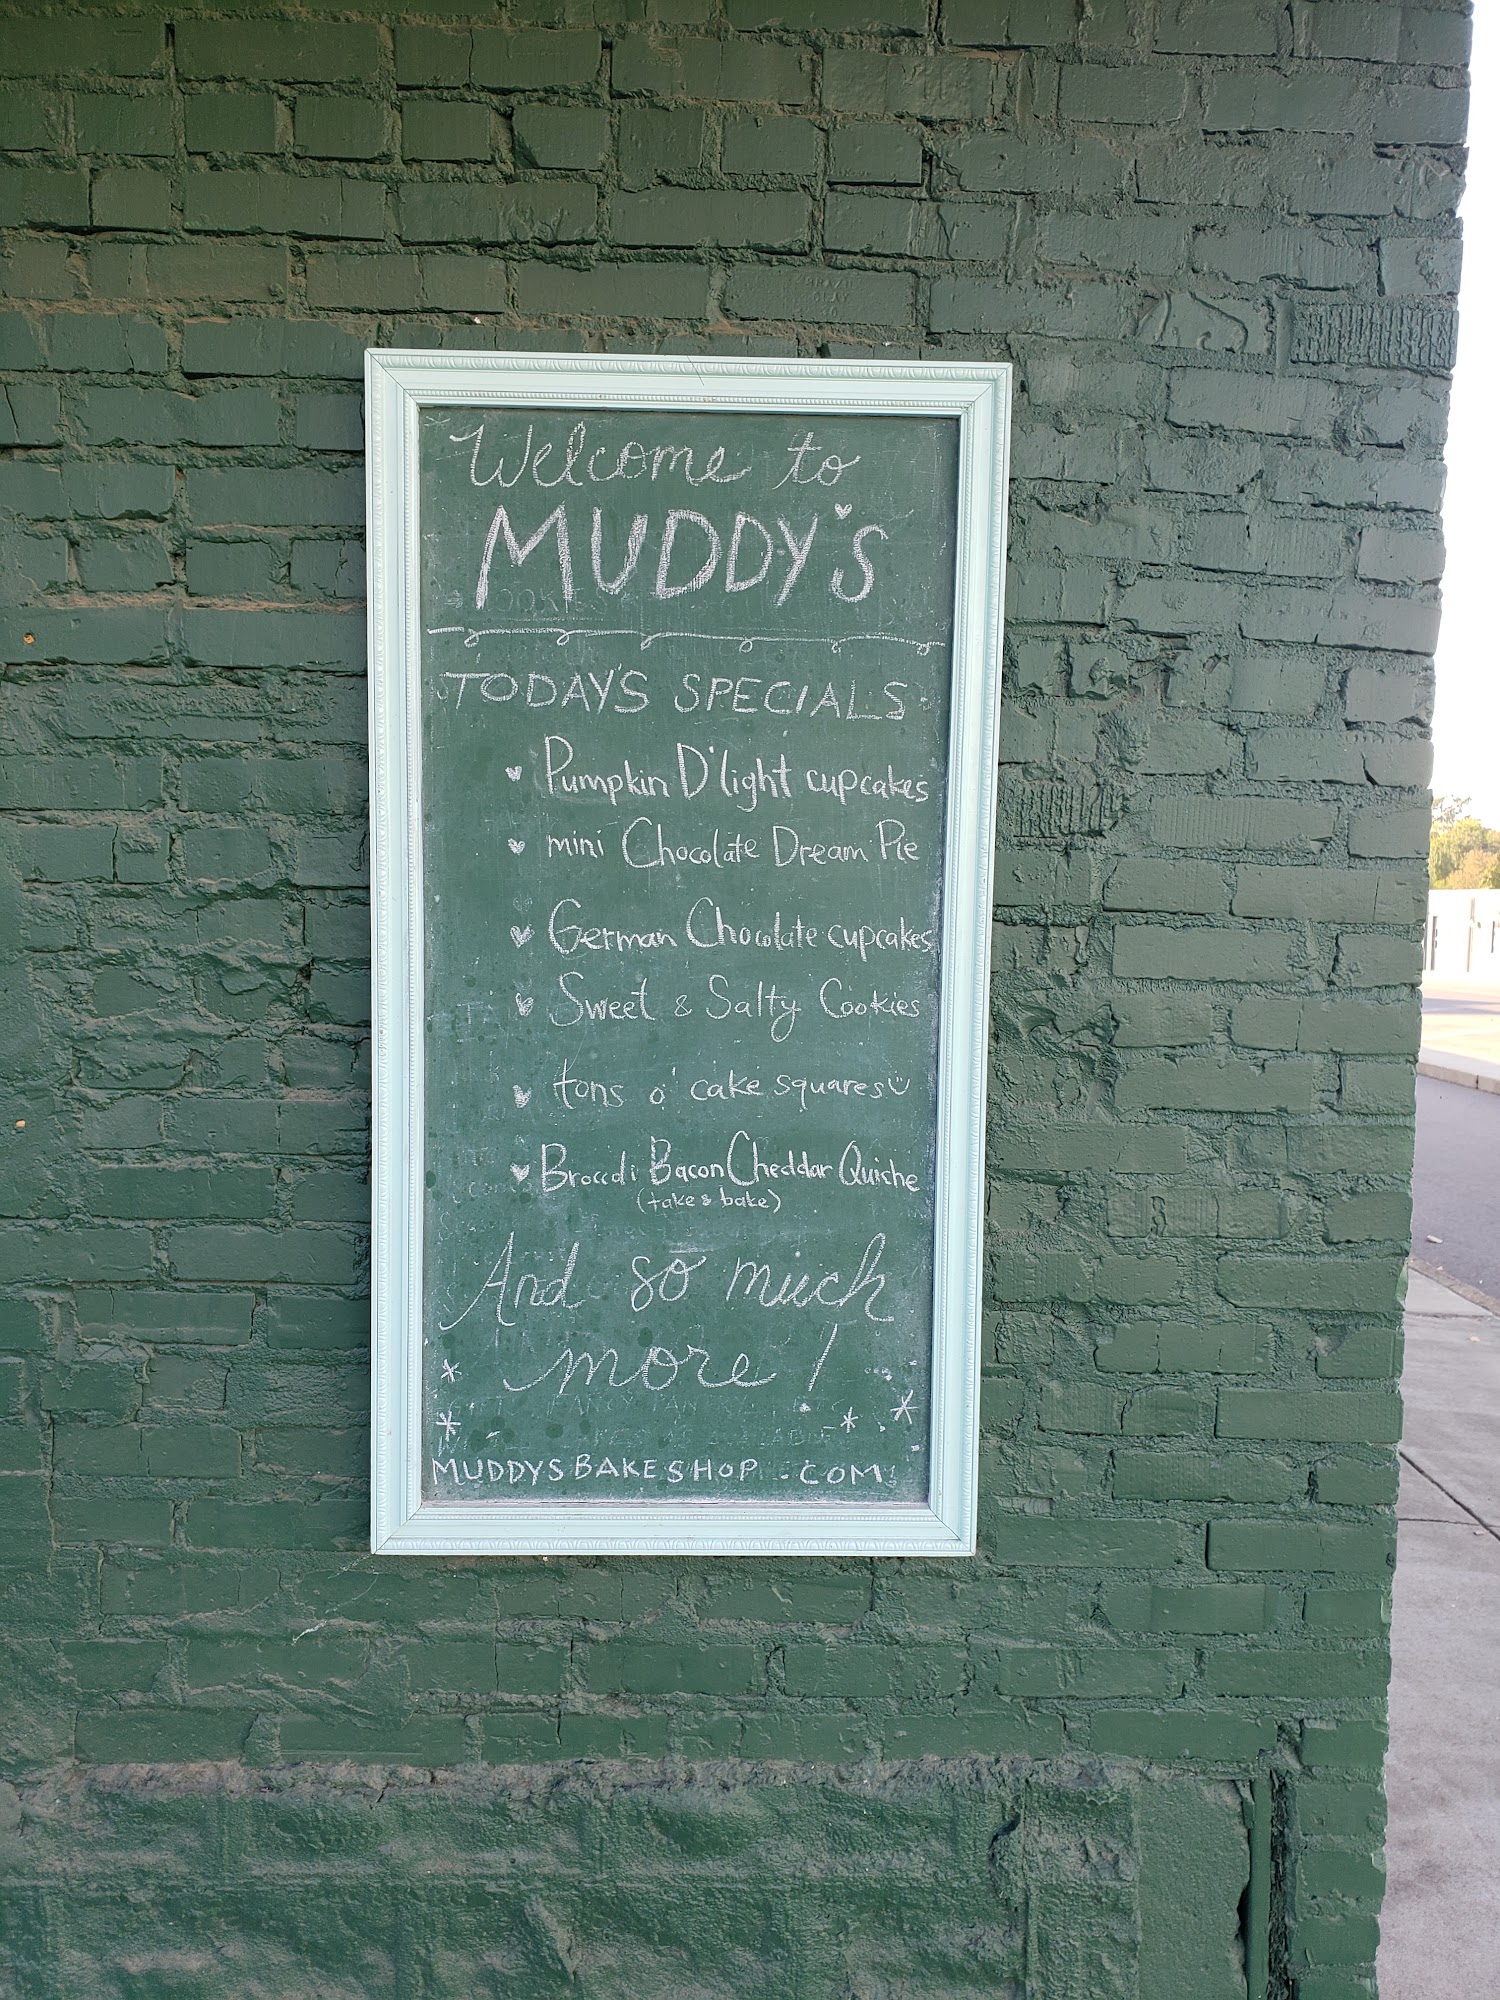 Welcome to
MUDDY's
TODAY'S SPECIALS
Pumpkin D'light cupcakes
mini Chocolate Dream Pie
German Chocolate cupcakes
Sweet & Salty Cookies
tons o' cake squares
Broccoli Bacon Cheddar Quiche
(take & bake)
And so much
more!
MUDDYSBAKESHOP.COM